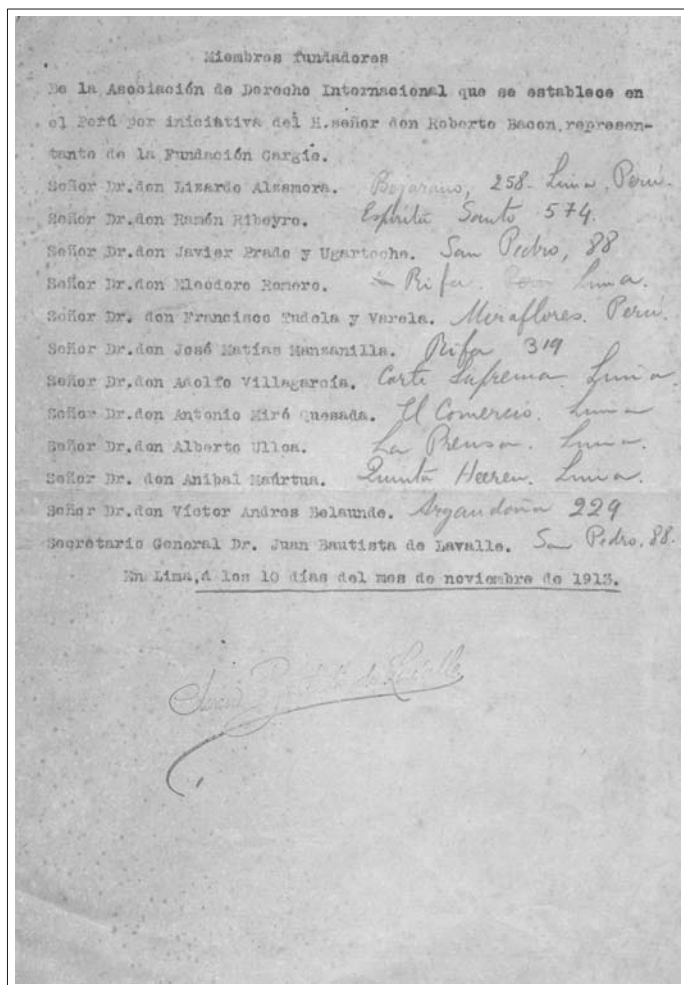 Miembros fundadores
De la Asociación de Derecho Internacional que se establece en
el Perú por iniciativa del H.señor don Roberto Bacon,represen-
tante de la Fundación Cargie.
Señor Dr.don Lizardo Alzamora. Bejarano, 258- Lima. Perú.
Señor Dr.don Ramón Ribeyro. Espíritu Santo 574.
Señor Dr.don Javier Prado y Ugarteche. San Pedro, 88
Señor Dr.don Eleodoro Romero. Rifa. Lima.
Señor Dr. don Francisco Tudela y Varela. Miraflores. Perú.
Señor Dr.don José Matías Manzanilla. Rifa 319
Señor Dr.don Adolfo Villagarcía. Corte Suprema. Lima.
Señor Dr.don Antonio Miró Quesada. El Comercio. Lima
Señor Dr.don Alberto Ulloa. La Prensa. Lima.
Señor Dr. don Anibal Maúrtua. Quinta Heeren. Lima.
Señor Dr.don Víctor Andres Belaunde. Argandoña 229
Secretario General Dr. Juan Bautista de Lavalle. San Pedro, 88.
En Lima,á los 10 días del mes de noviembre de 1913.
Juan Bautista de Lavalle